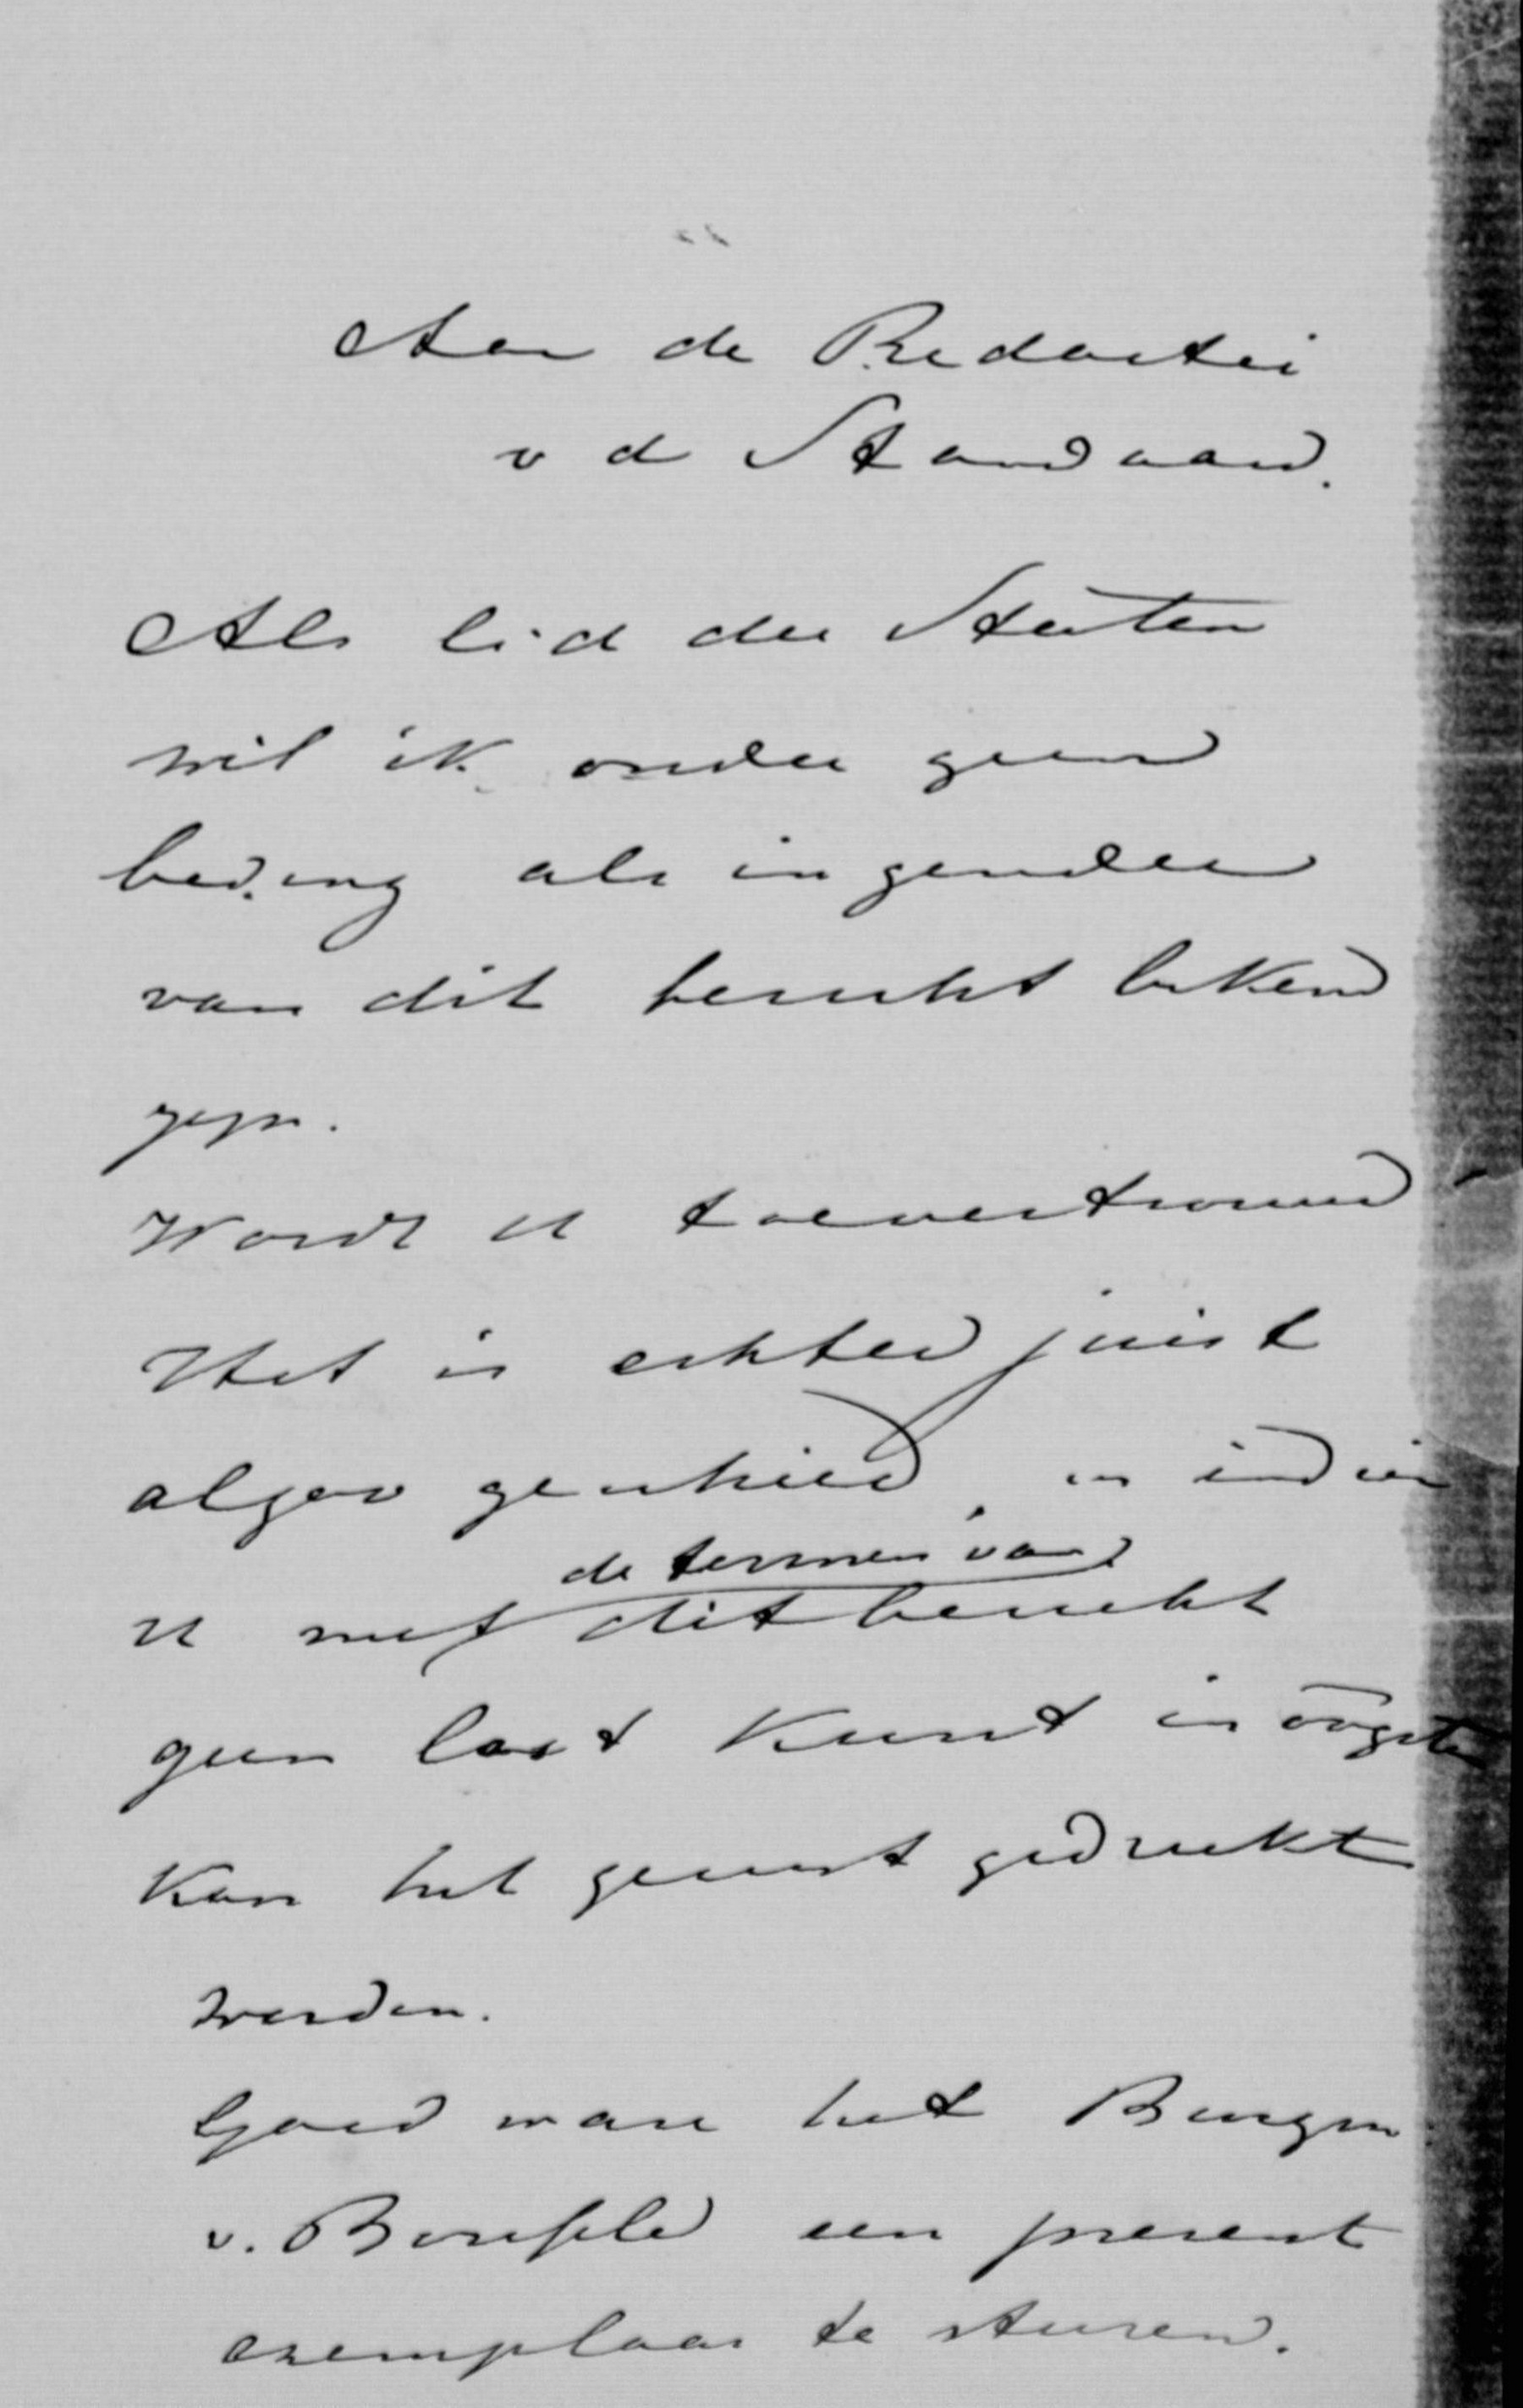 Aan de Redactie
v d Standaard.
Als lid der Staten
wil ik onder geen
beding als inzender
van dit bericht bekend
zijn.
Wordt U toevertrouwd
Het is echter juist
alzoo geschied, en indien
de termen van
U met dit bericht
geen last kunt
kan het gerust gedrukt
worden.
Goed ware het Burgem
v. een present
exemplaar te sturen.